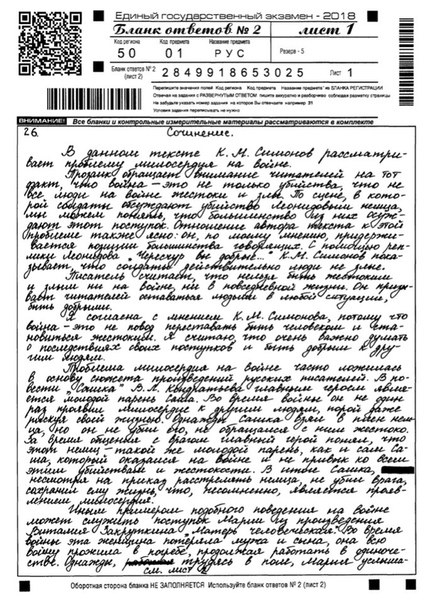 Единый государственный экзамен - 2018
Бланк ответов № 2 лист 1
Код региона Код предмета Название предмета
50 01 РУС Резерв - 5
Бланк ответов № 2 (лист 2) 2849918653025 Лист 1
Перепишите значения полей "Код региона", "Код предмета", "Название предмета" из БЛАНКА РЕГИСТРАЦИИ
Отвечая на задания с РАЗВЕРНУТЫМ ОТВЕТОМ пишите аккуратно и разборчиво, соблюдая разметку страницы
Не забудьте указать номер задания, на которое Вы отвечаете, например, 31
ВНИМАНИЕ! Все бланки и контрольные измерительные материалы рассматриваются в комплекте
26. Сочинение.
В данном тексте К. М. Симонов рассматри-
вает проблему милосердия на войне.
Прозаик обращает внимание читателей на тот
факт, что война – это не только убийства, что не
все люди на войне жестоки и злы. По сцене, в кото-
рой солдаты осуждают убийство Леонидовым немца,
мы можем понять, что большинство из них осуж-
дают этот поступок. Отношение автора текста к этой
проблеме также ясно: он, по моему мнению, придержи-
вается позиции большинства говорящих. С помощью реп-
лики Леонидова "Чересчур вы добрые..." К. М. Симонов пока-
зывает, что солдаты действительно люди не злые.
Писатель считает, что нельзя быть жестоким
и злым ни на войне, ни в повседневной жизни. Он призы-
вает читателей оставаться людьми в любой ситуации,
быть добрыми.
Я согласна с мнением К. М. Симонова, потому что
война – это не повод переставать быть человеком и ста-
новиться жестоким. Я считаю, что очень важно думать
о последствиях своих поступков и быть добрым к дру-
гим людям.
Проблема милосердия на войне часто ложилась
в основу сюжета произведений русских писателей. В по-
вести "Сашка" В. Л. Кондратьева главным героем явля-
ется молодой парень Саша. Во время войны он не один
раз проявил милосердие к другим людям, порой даже
рискуя своей жизнью. Однажды Сашка взял в плен нем-
ца, но он не убил его, не обращался с ним жестоко.
За время общения с врагом главный герой понял, что
этот немец – такой же молодой парень, как и сам Са-
ша, который оказался на войне и не привык ко всем
этим убийствам и жестокости. В итоге Сашка,
несмотря на приказ расстрелять немца, не убил врага,
сохранил ему жизнь, что, несомненно, является прояв-
лением милосердия.
Иным примером подобного поведения на войне
может служить поступок Марии из произведения
Виталия Закруткина "Матерь человеческая". Во время
войны эта женщина потеряла мужа и сына, она всю
войну прожила в погребе, продолжая работать в одиноче-
стве. Однажды, трудясь в поле, Мария услыша-
см. лист 2
Оборотная сторона бланка НЕ ЗАПОЛНЯЕТСЯ. Используйте бланк ответов № 2 (лист 2)